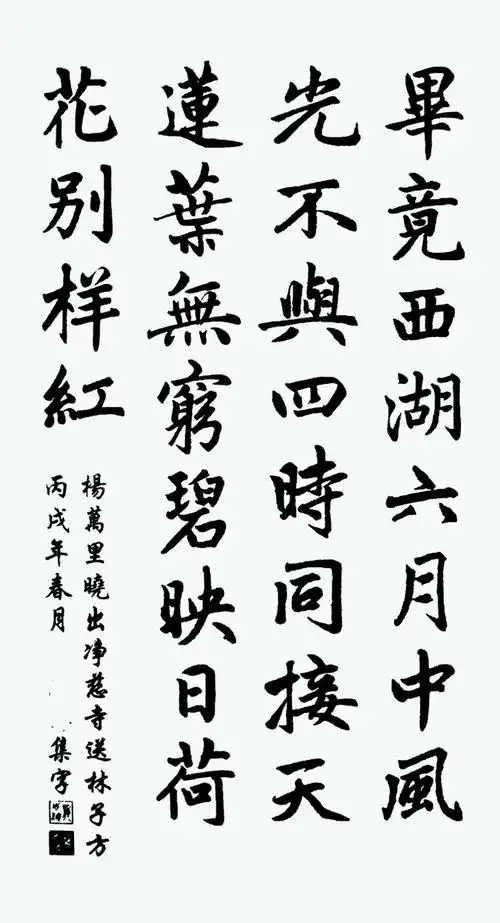 畢竟西湖六月中風
光不與四時同接天
蓮葉無窮碧映日荷
花别样紅
楊萬里曉出净慈寺送林子方
丙戌年春月
集字